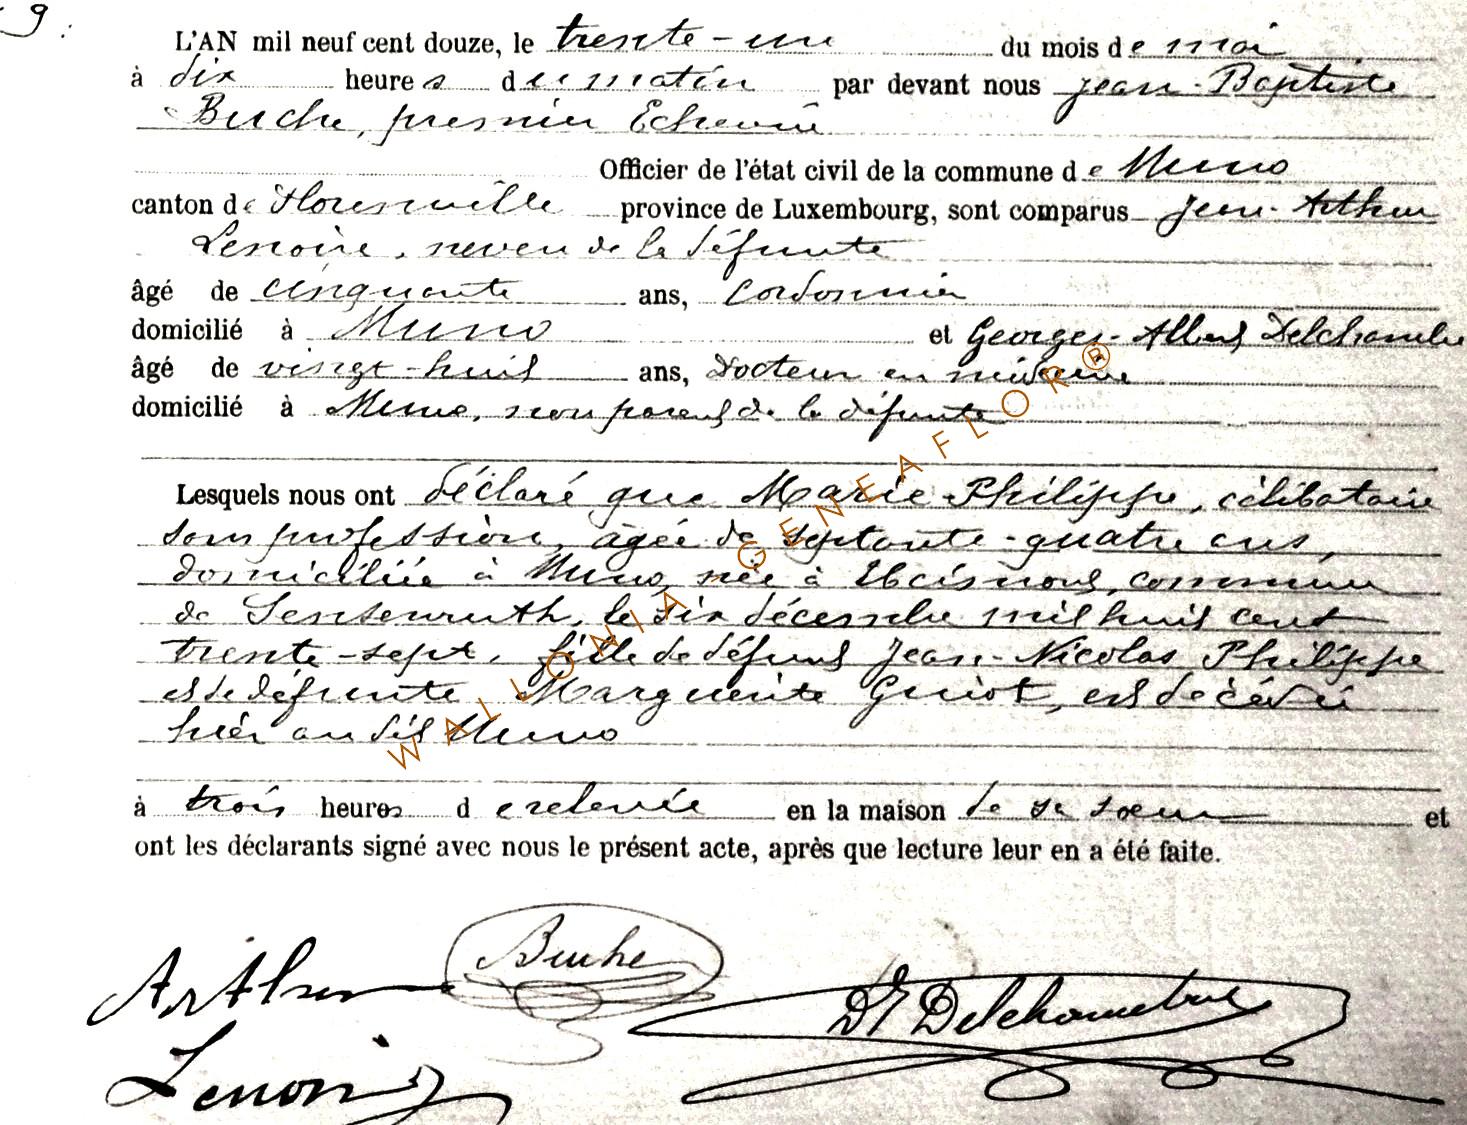 9.
L'AN mil neuf cent douze, le trente-un du mois de mai
à dix heures du matin par devant nous Jean-Baptiste
Buche, premier Echevin
Officier de l'état civil de la commune de Muno
canton de Florenville province de Luxembourg, sont comparus Jean-Arthur
Lenoire, neveu de la défunte
âgé de cinquante ans, Cordonnier
domicilié à Muno et Georges-Albert Delchambre
âgé de vingt-huit ans, Docteur en médecine
domicilié à Muno, non parent de la défunte
Lesquels nous ont déclaré que Marie Philippe, célibataire
sans profession, âgée de septante-quatre ans,
domiciliée à Muno, née à commune
de Sensenruth, le six décembre mil huit cent
trente-sept, fille de défunt Jean-Nicolas Philippe
et de défunte Marguerite Guiot, est décédée
hier au dit Muno
à trois heures de relevée en la maison de sa soeur et
ont les déclarants signé avec nous le présent acte, après que lecture leur en a été faite.
Arthur Buche Dr Delchambre
Lenoir
WALLONIA-GENEAFLOR®